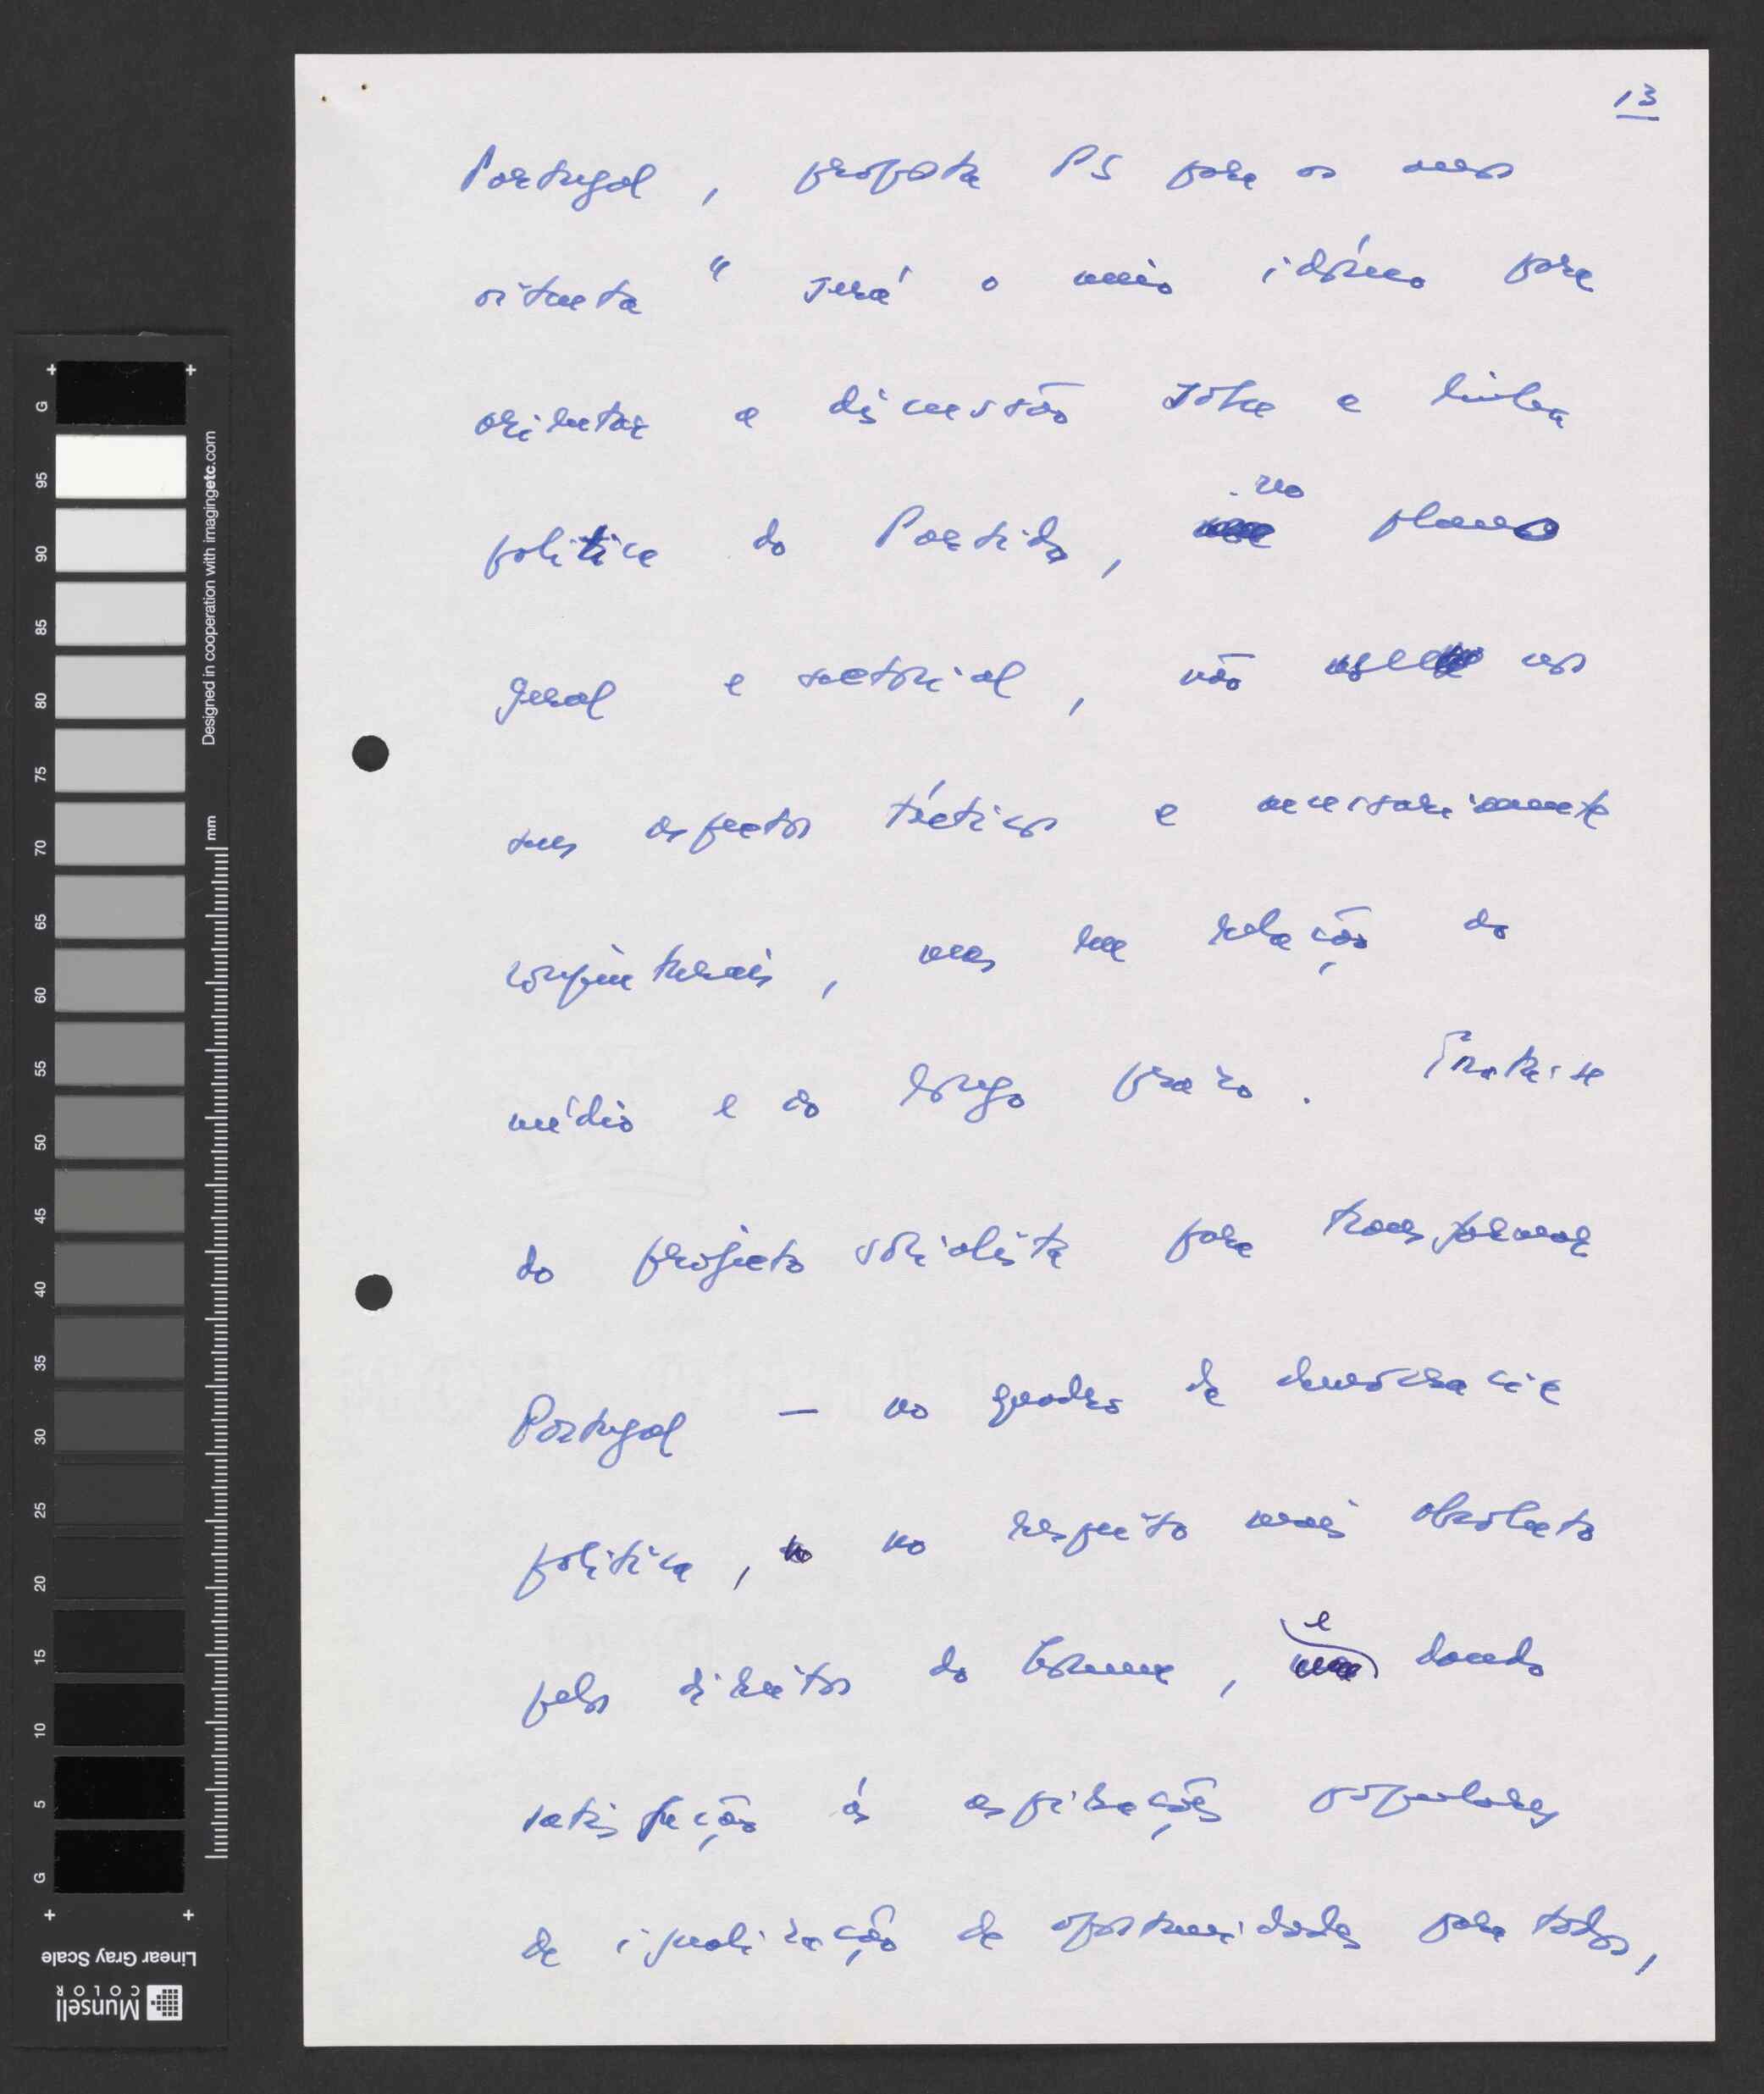 13
Portugal, proposta PS para os anos
oitenta" será o mais idóneo para
orientar a discussão sobre a linha
política do Partido, no plano
geral e sectorial, não nos
seus aspectos tácticos e necessariamente
conjunturais, mas na relação do
médio e do longo prazo. Trata-se
do projecto socialista para transformar
Portugal — no quadro da democracia
política, no respeito mais absoluto
pelos direitos do homem, e dando
satisfação às aspirações populares
de igualização de oportunidades para todos,
G
95
90
85
80
75
70
65
60
55
50
45
40
35
30
25
20
15
10
5
G
mm
Designed in cooperation with imagingetc.com
Linear Gray Scale
Munsell
COLOR